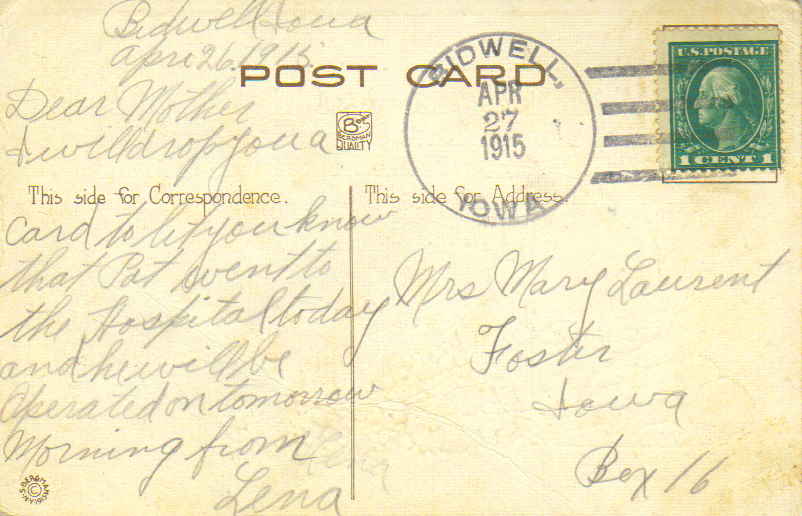 Bidwell Iowa
Apri 26, 1915.
POST CARD
Dear Mother
I will drop you a
BERGMAN
QUALITY
BIDWELL,
APR
27
1915
IOWA.
U.S. POSTAGE
1 CENT 1
This side for Correspondence.
This side for Address.
Card to let you know
that Pat went to
the Hospital today
and he will be
Operated on tomorrow
Morning from
Lena
Lena
Mrs Mary Laurent
Foster
Iowa
Box 16